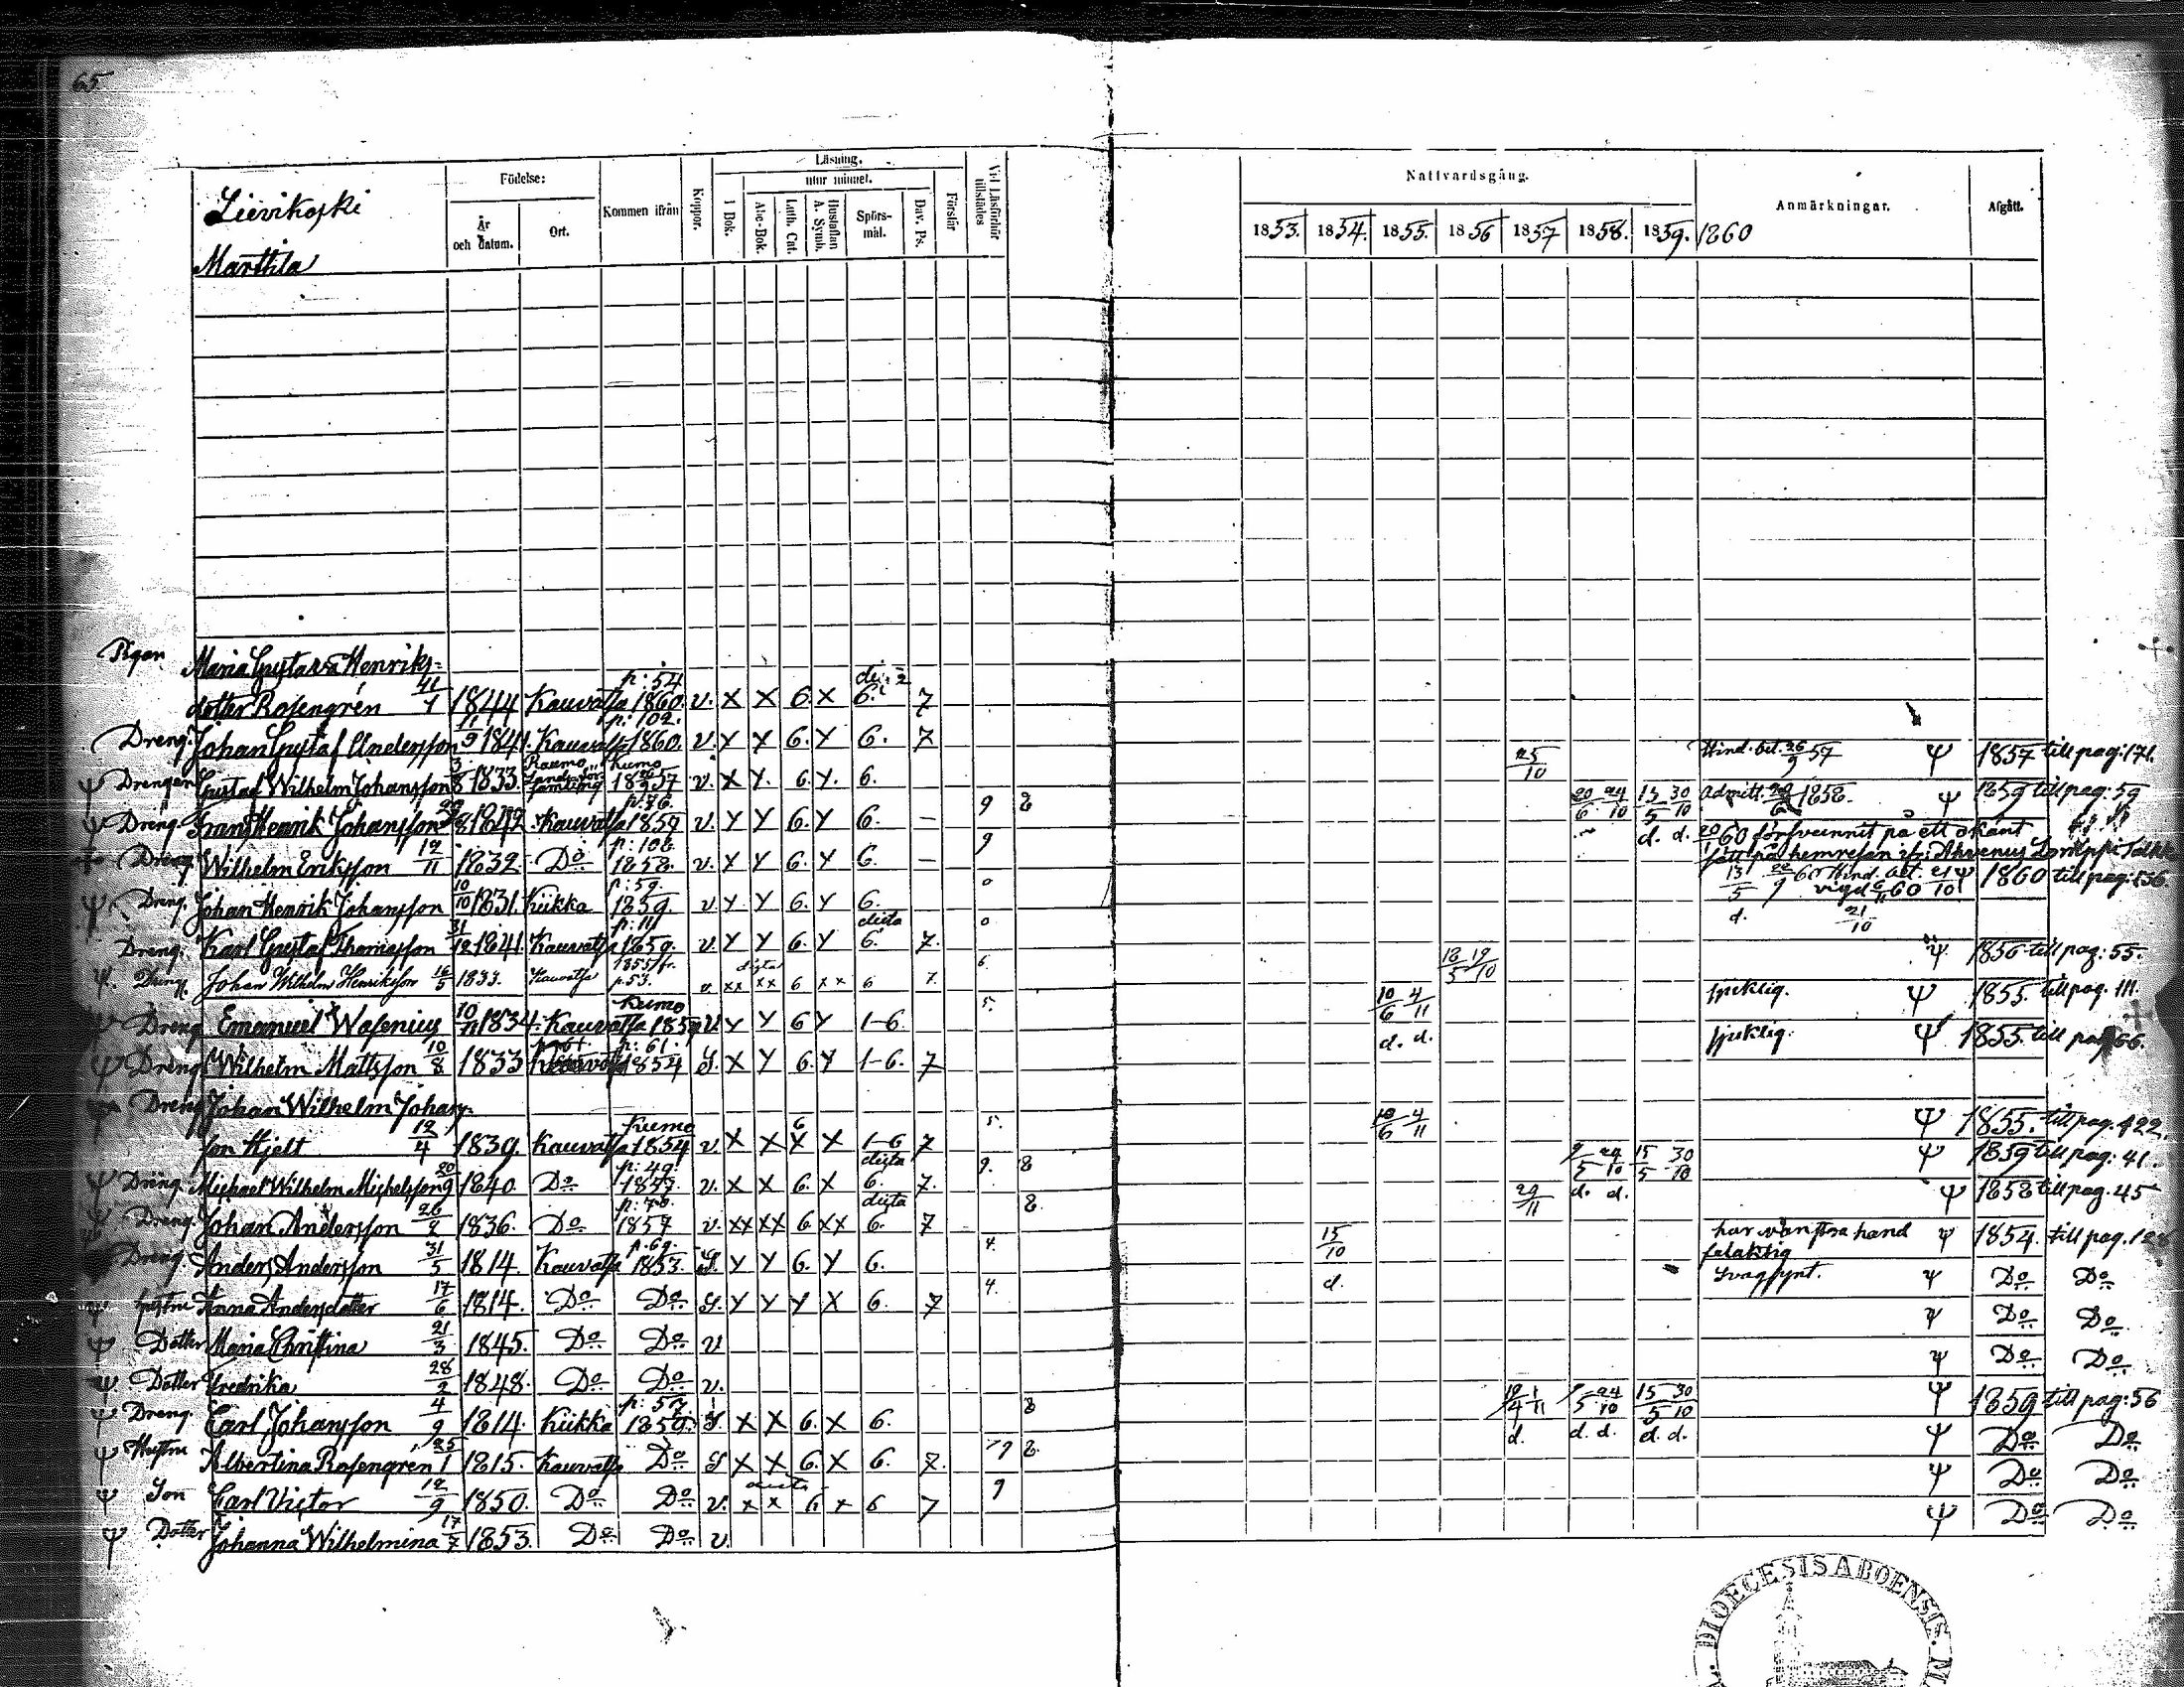 65
Lievikoski
Marttila
Födelse:
År och datum.
Ort.
Kommen ifrån
Koppor.
Läsning.
utur minnet.
I Bok.
Abc-Bok.
Luth. Cat.
Hustaflan A. Symb.
Spörsmål.
Dav. Ps.
Förstår
Vid Läsförhör tillstädes
Nattvardsgång.
1853. 1854. 1855. 1856 1857 1858. 1859. 1860
Anmärkningar.
Afgått.
Pigan Maria Gustava Henriks=
dotter Rosengrén 1844 Kauvatsa p: 54 1860. v. X X 6. X 6. 7
Dreng. Johan Gustaf Andersson 1841. Kauvatsa p: 102. 1860. v. Y Y 6. Y 6. 7
Ψ Drengen Gustaf Wilhelm Johansson 3/8 1833. Raumo Kumo 1857 v. X Y. 6. Y. 6. 25/10 Hind. bet. 26/9 57 Ψ 1857 till pag: 171.
Ψ Dreng. Frans Henrik Johansson 1842. Kauvatsa p: 76. 1859 v. Y Y 6. Y 6. – 9 8 20/6 24/10 15/5 30/10 Admitt. 1858. Ψ 1859 till pag: 59
Dreng Wilhelm Eriksson 12/11 1832 Do p: 106 1858. v. Y Y 6. Y 6. – 9 d. d. 20/60 försvunnit på ett okänt
sätt på hemresan
Ψ Dreng. Johan Henrik Johansson 10/10 1831. Kiikka p: 59. 1859. v Y. Y 6. Y 6. 0 13/5 Hind. bet. vigd 60 Ψ 1860 till pag: 136
Dreng. Karl Gustaf Thomasson 31/12 1841. Kauvatsa p: 111 1859. v. Y Y 6. Y dicta 6. 7. 0 d. 21/10
Ψ. Dreng. Johan Wilhelm Henriksson 16/5 1833. Kauvatsa 1855 fr. p. 53. v. xx xx 6 xx 6 7. 6. 18/5 19/10 Ψ. 1856 till pag: 55.
Ψ Dreng Emanuel Wasenius 10/11 1834. Kauvatsa Kumo v. Y Y 6 Y 1-6. 5. 10/6 4/11 sjuklig. Ψ 1855. till pag. 111.
Ψ Dreng Wilhelm Mattsson 10/8 1833 p: 61. 1854 S. X Y 6. Y 1-6. 7 d. d. sjuklig. Ψ 1855. till pag 66.
Dreng Johan Wilhelm Johans-
son Hjelt 12/4 1839. Kauvatsa Kumo 1854 v. X X 6 X X 1-6 7 5. 10/6 4/11 Ψ 1855. till pag. 422.
Ψ Dreng. Michael Wilhelm Michelsson 20/9 1840. Do p: 49. 1857. v. X X 6. X dicta 6. 7. 9. 8 9/5 24/10 15/5 30/10 Ψ 1859 till pag: 41.
Ψ Dreng. Johan Andersson 26/2 1836. Do p: 70. 1857 v. xx xx 6. xx dicta 6. 7 8. 29/11 d. d. Ψ 1858 till pag. 45
Dreng. Anders Andersson 31/5 1814. Kauvatsa p. 69. 1853. S. Y Y 6. Y 6. 4. 15/10 har vänstra hand
felaktig Ψ 1854. till pag. 12
Ψ hustru Anna Andersdotter 17/6 1814. Do Do S. Y Y Y X 6. 7 4. d. Svagsynt. Ψ Do Do
Ψ Dotter Maria Christina 21/3 1845. Do Do v Ψ Do Do
Ψ Dotter Fredrika 28/2 1848. Do Do v. Ψ Do Do
Ψ Dreng. Carl Johansson 4/9 1814. Kiikka p: 57. S. X X 6. X 6. 8 1/11 9/5 24/10 15/5 30/10 Ψ 1859 till pag: 56
Ψ Hustru Albertina Rosengrén 25/1 1815. Kauvatsa Do S X X 6. X 6. 7. 9 8. d. d. d. d. d. Ψ Do Do
Ψ Son Carl Victor 12/9 1850. Do Do v. dicta x x 6 x 6 7 9 Ψ Do Do
Ψ Dotter Johanna Wilhelmina 17/7 1853. Do Do v. Ψ Do Do
DIOECESIS ABOENSIS